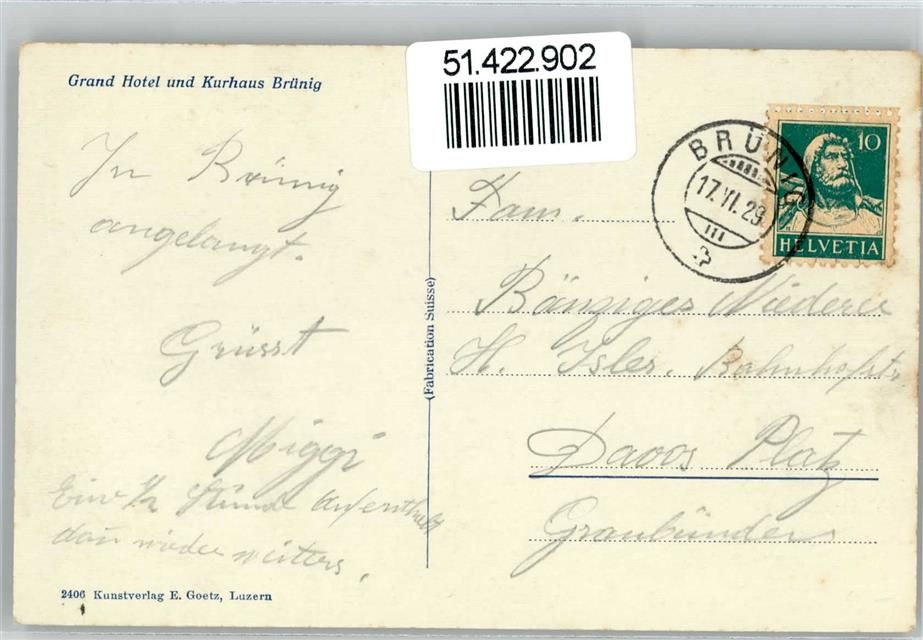 51.422.902
Grand Hotel und Kurhaus Brünig
In Brünig
angelangt.
Grüsst
Miggi
Eine 1/2 Stunde Aufenthalt
dan wieder weiters.
2406 Kunstverlag E. Goetz, Luzern
(Fabrication Suisse)
BRÜNIG
17.VI.29
III
10
HELVETIA
Fam.
Bänziger
H. Isler. Bahnhofstr.
Davos Platz
Graubünden